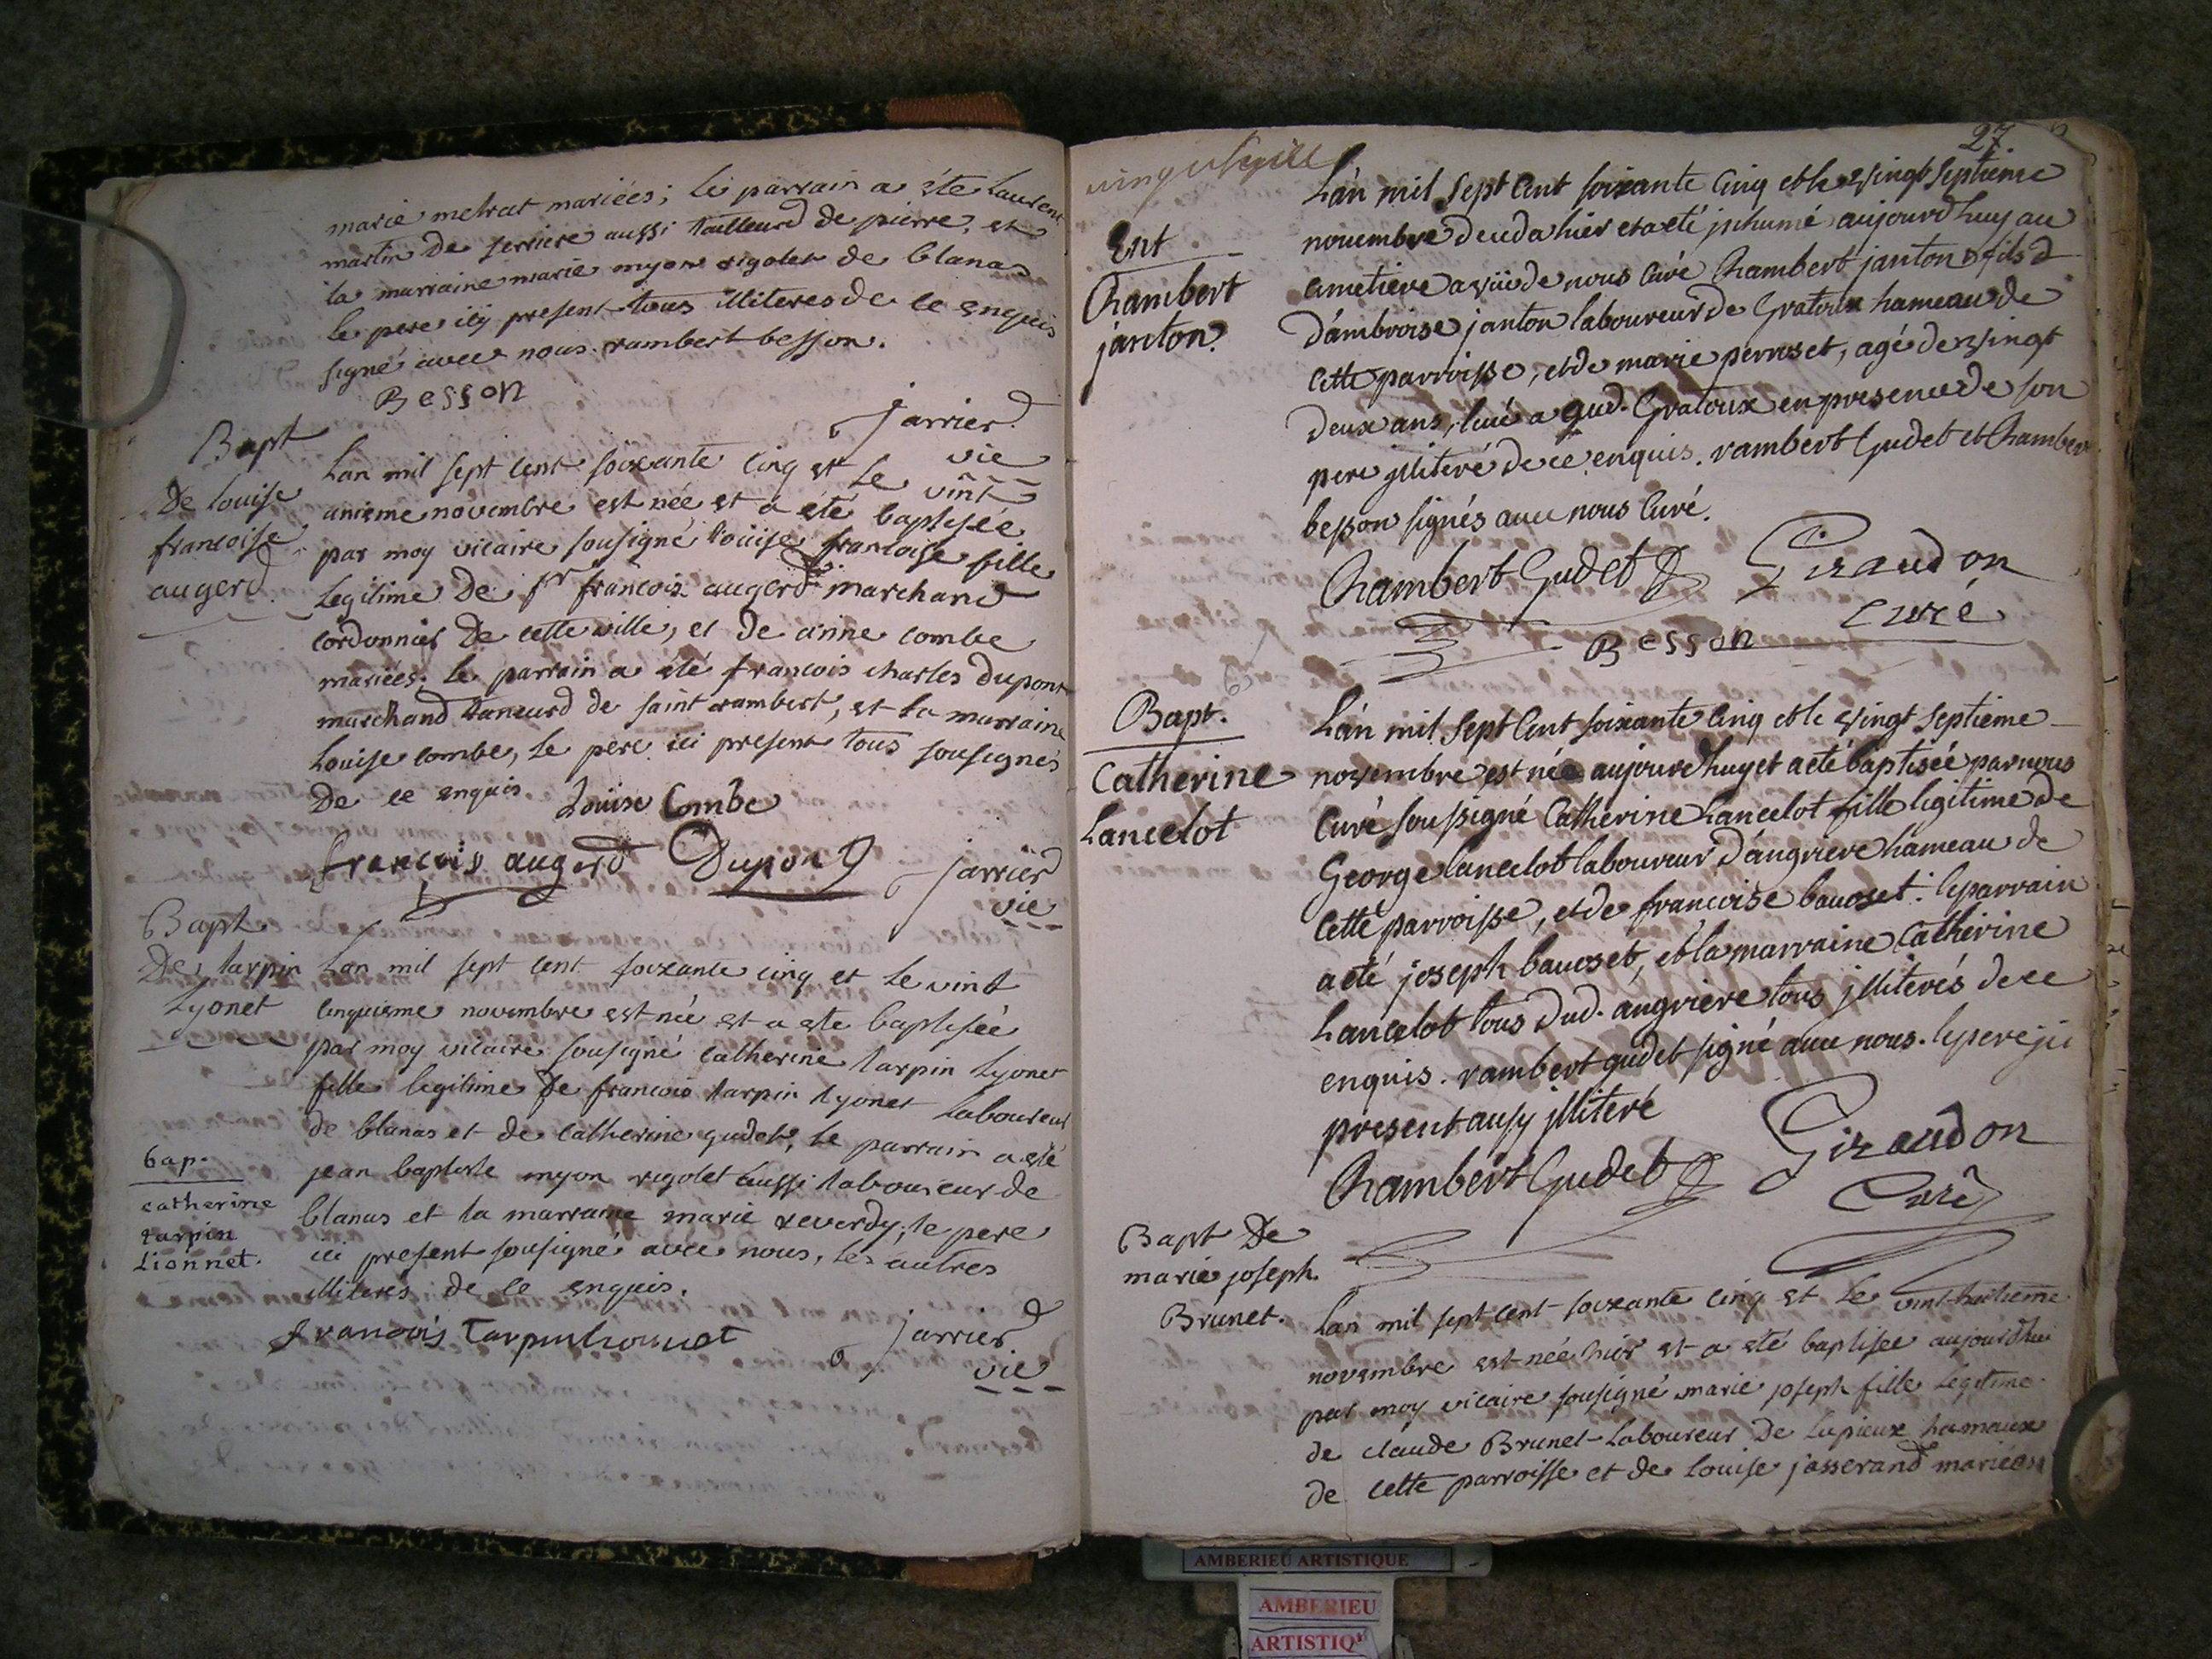 marie metrat mariées; le parrain a été Laurent
martin de serriere aussi tailleurd de pierre, et
la marraine marie myon rigolet de blanas
le pere icy present tous illiteres de ce enquis
signé avec nous rambert besson.
Besson
jarrier
vie
Bapt
De louise
francoise
augerd
Lan mil sept cent soixante cinq et le vint
unieme novembre est née et a été baptisée
par moy vicaire sousigné loüise francoise fille
Legitime De sr francois augerd marchand
cordonnier De cette ville, et de anne combe
mariées. le parrain a été francois charles dupont
marchand taneurd de saint rambert, et la marraine
Louise combe, le pere ici present tous sousignés
De ce enquis.
Loüise Combe
françois augerd Dupont
jarrier
vie
Bapt
De tarpin
Lyonet
Lan mil sept cent soixante cinq et le vint
cinquieme novembre est née et a ete baptisée
par moy vicaire sousigné catherine tarpin Lyonet
fille legitime de francois tarpin lyonet laboureur
de blanas et de catherine gudet, le parrain a été
jean baptiste myon rigolet aussi laboureur de
blanas et la marraine marie reverdy; le pere
ici present sousigné avec nous, les autres
illiterés de ce enquis.
bap.
catherine
tarpin
Lionnet.
francois Tarpin
jarrier
vie
27
Ent
Rambert
janton
L'an mil sept cent soixante cinq et le vingt septieme
novembre deceda hier et a eté jnhumé aujourdhuy au
cimetiere de nous curé Rambert janton fils d
d'ambroise janton laboureur de Gratoux hameau de
cette parroisse, et de marie perruset, agé de vingt
deux ans, a gud. Gratoux en presence de son
pere jlliteré de ce enquis. rambert Gudet et Rambert
besson signés avec nous Curé.
Rambert Gudet Giraudon
curé
Besson
Bapt.
Catherine
Lancelot
L'an mil sept Cent soixante cinq et le vingt septieme
novembre est née aujourdhuy et a eté baptisée par nous
Curé soussigné Catherine Lancelot fille legitime de
George lancelot laboureur d'angriere hameau de
cette parroisse, et de francoise baucset: le parrain
a eté joseph baucset, et la marraine Catherine
Lancelot tous dud. angriere tous jlliterés de ce
enquis. rambert gudet signé avec nous. le pere jci
present aussy jlliteré
Rambert Gudet Giraudon
Curé
Bapt De
marie joseph
Brunet.
Lan mil sept cent soixante cinq et le vint huitieme
novembre est née hier et a eté baptisee aujourdhui
par moy vicaire sousigné marie joseph fille legitime
de claude Brunet Laboureur De Lupieux hamaux
de cette parroisse et de louise jasserand mariées
AMBERIEU ARTISTIQUE
AMBERIEU
ARTISTIQ